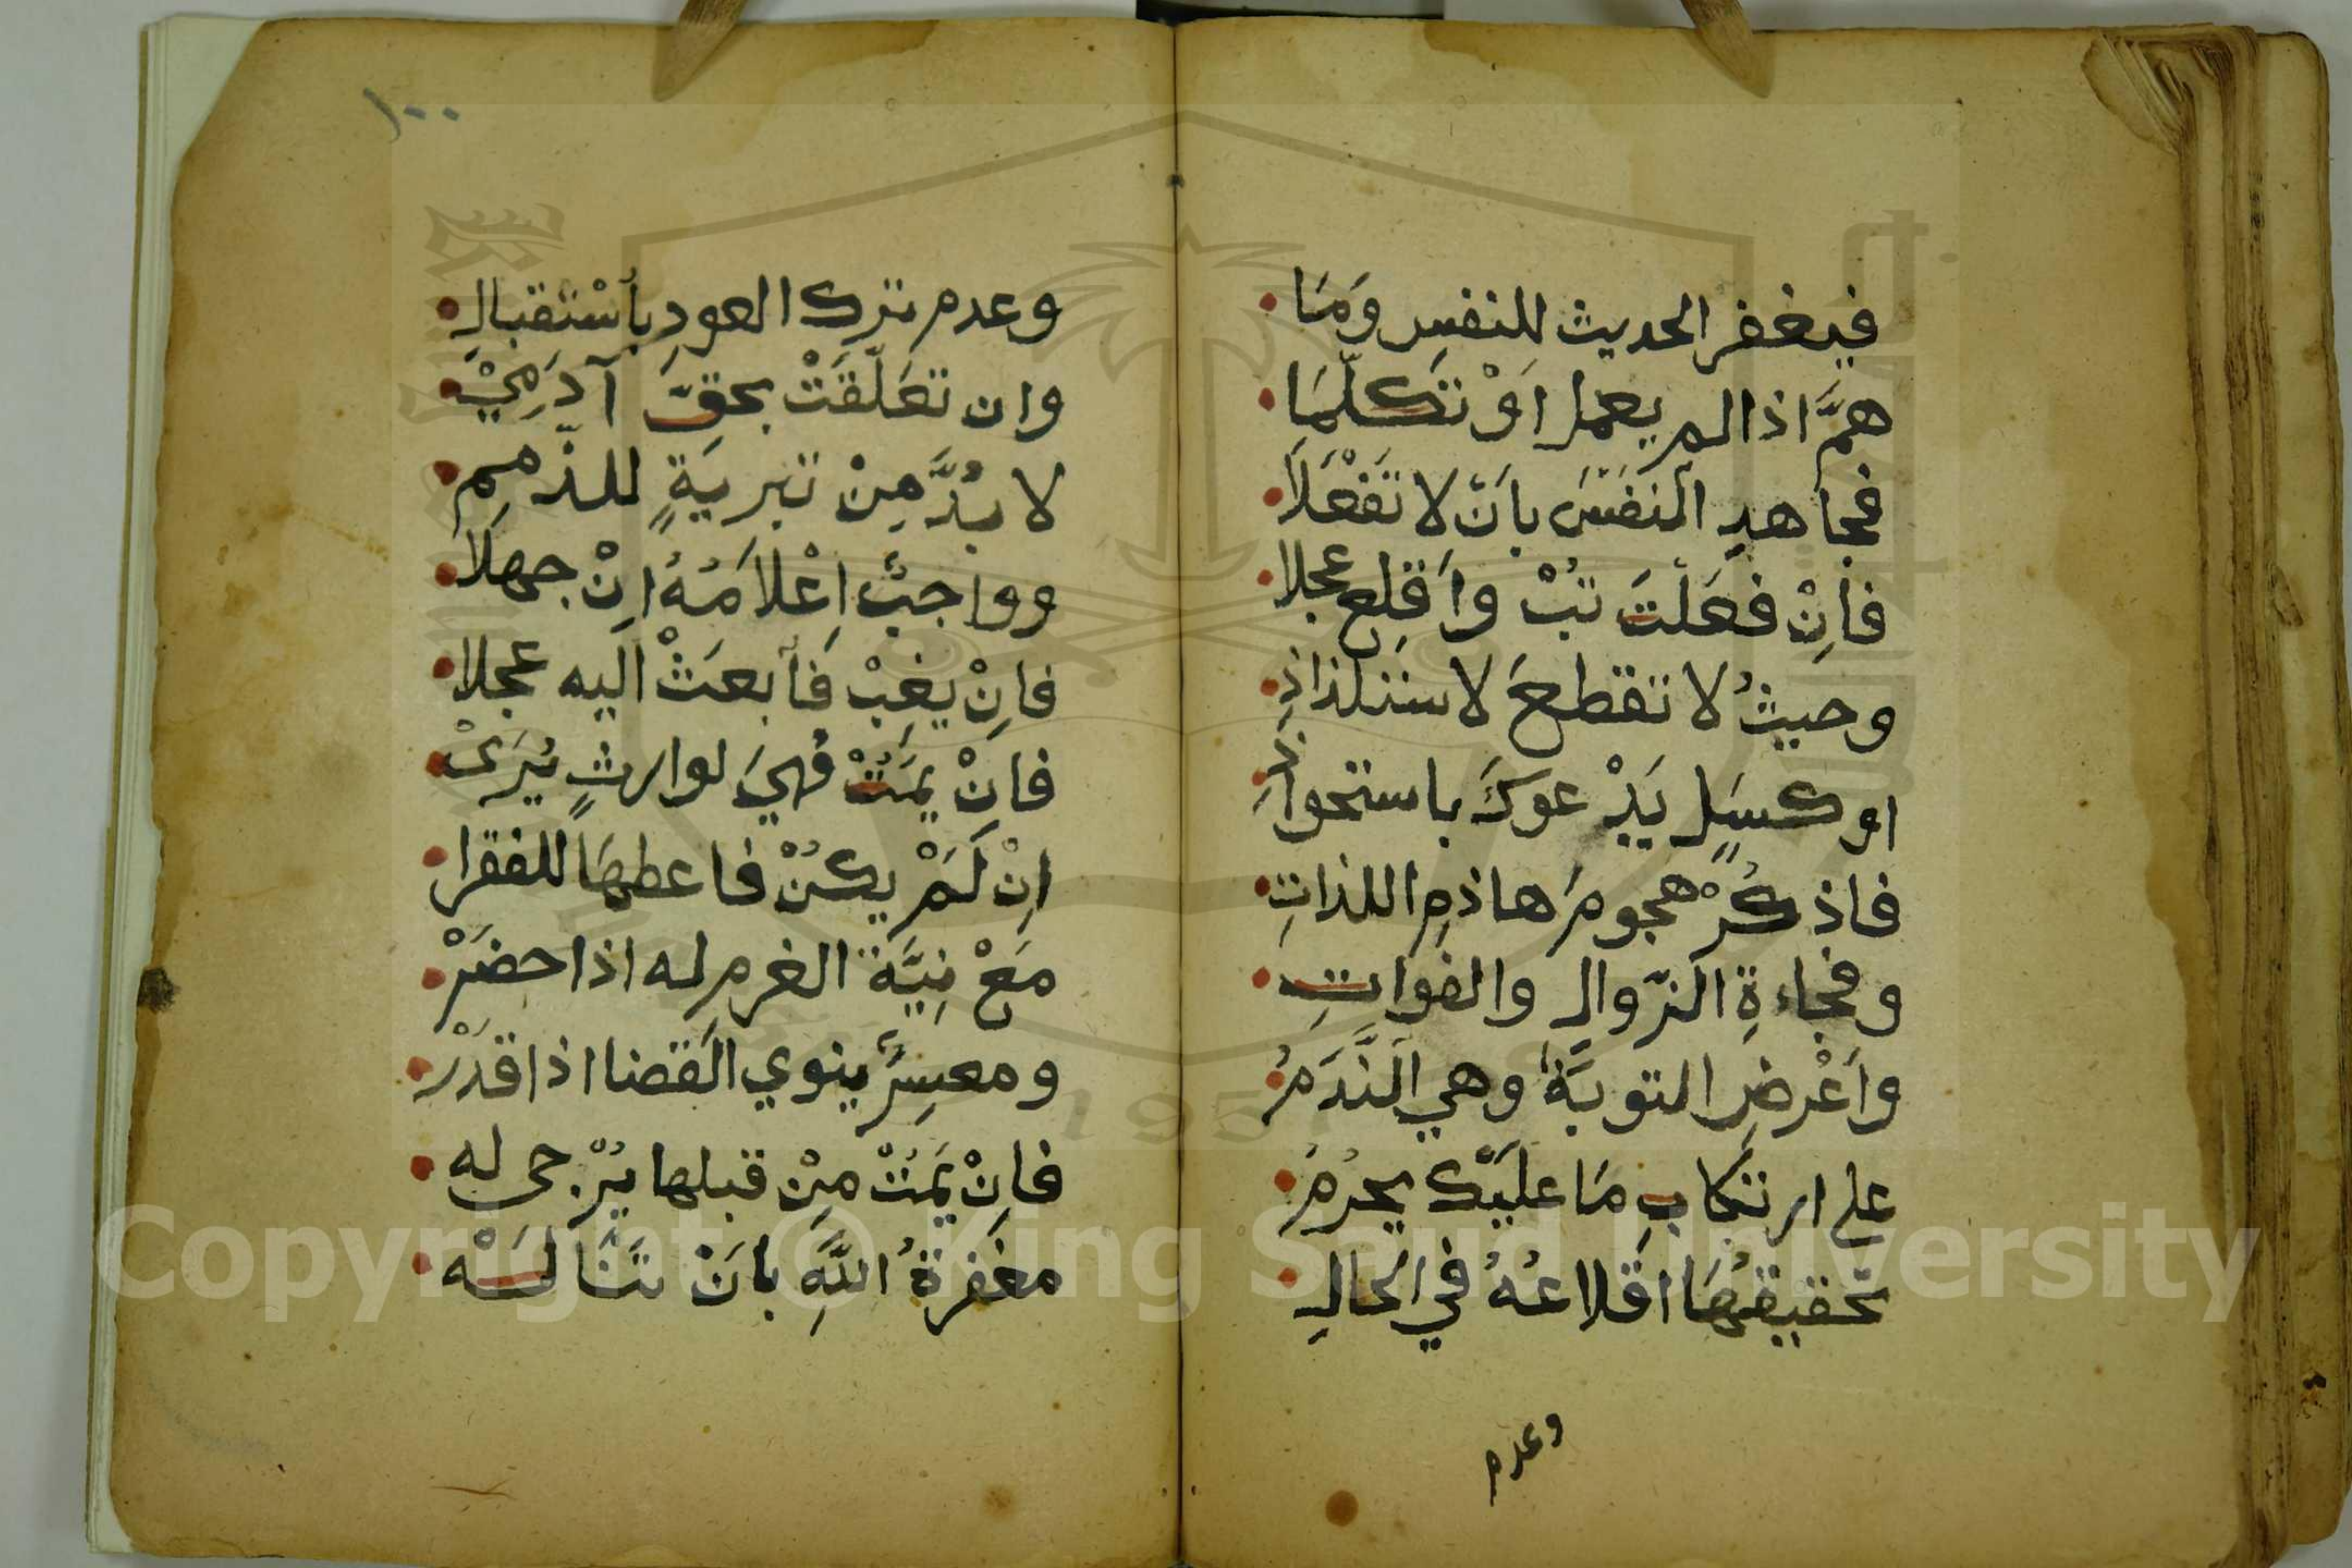 فيغفر الحديث للنفسِ وَمَا
همَّ اذا لم يعمل اوْ تتَكلّمَا
فجاهدِ النفسَ بانْ لا تَفْعَلَا
فاِنْ فعَلتَ تبُْ واَقلِع عجلا
وحيثُ لا تقطعَ لاستلذاذِ
او كسَلٍ يَدْعوكَ باستحواذِ
فاذكُرْ هجومَ هاذمِ اللذاتِ
وفجاءةِ الزّوالِ والفواتِ
واَعْرضِ التوبَةَ وهي النَّدَمُ
على ارتكابِ مَا عليَك يحرُمُ
تحقيقُهَا اقلاعُهُ في الحالِ
وعدم
١٠٠
وعدم ترك العودِ بأسْتقبالِ
وان تعَلّقَتْ بحقِّ آدَمِيْ
لا بُدَّ مِنْ تبريَةٍ للذّممِ
وواجبٌ اِعْلامَهُ اِنْ جهلَا
فاِنْ يغِبْ فَأبعَثْ اليه عجلا
فاِنْ يمَتُْ فهيَ لوارثٍ يُرَىْ
اِنْ لَمْ يكُنْ فاعطهَا للفقرا
مَعْ نِيَّة الغرم له اذا حضَرْ
ومعسِرٌ ينوي القضا اذا قدَرْ
فاِنْ يَمُتْ مِنْ قبلها يُرْجى له
مغَفرةُ اللَّهِ بانَْ تنَالَهْ
Copyright © King Saud University
1957